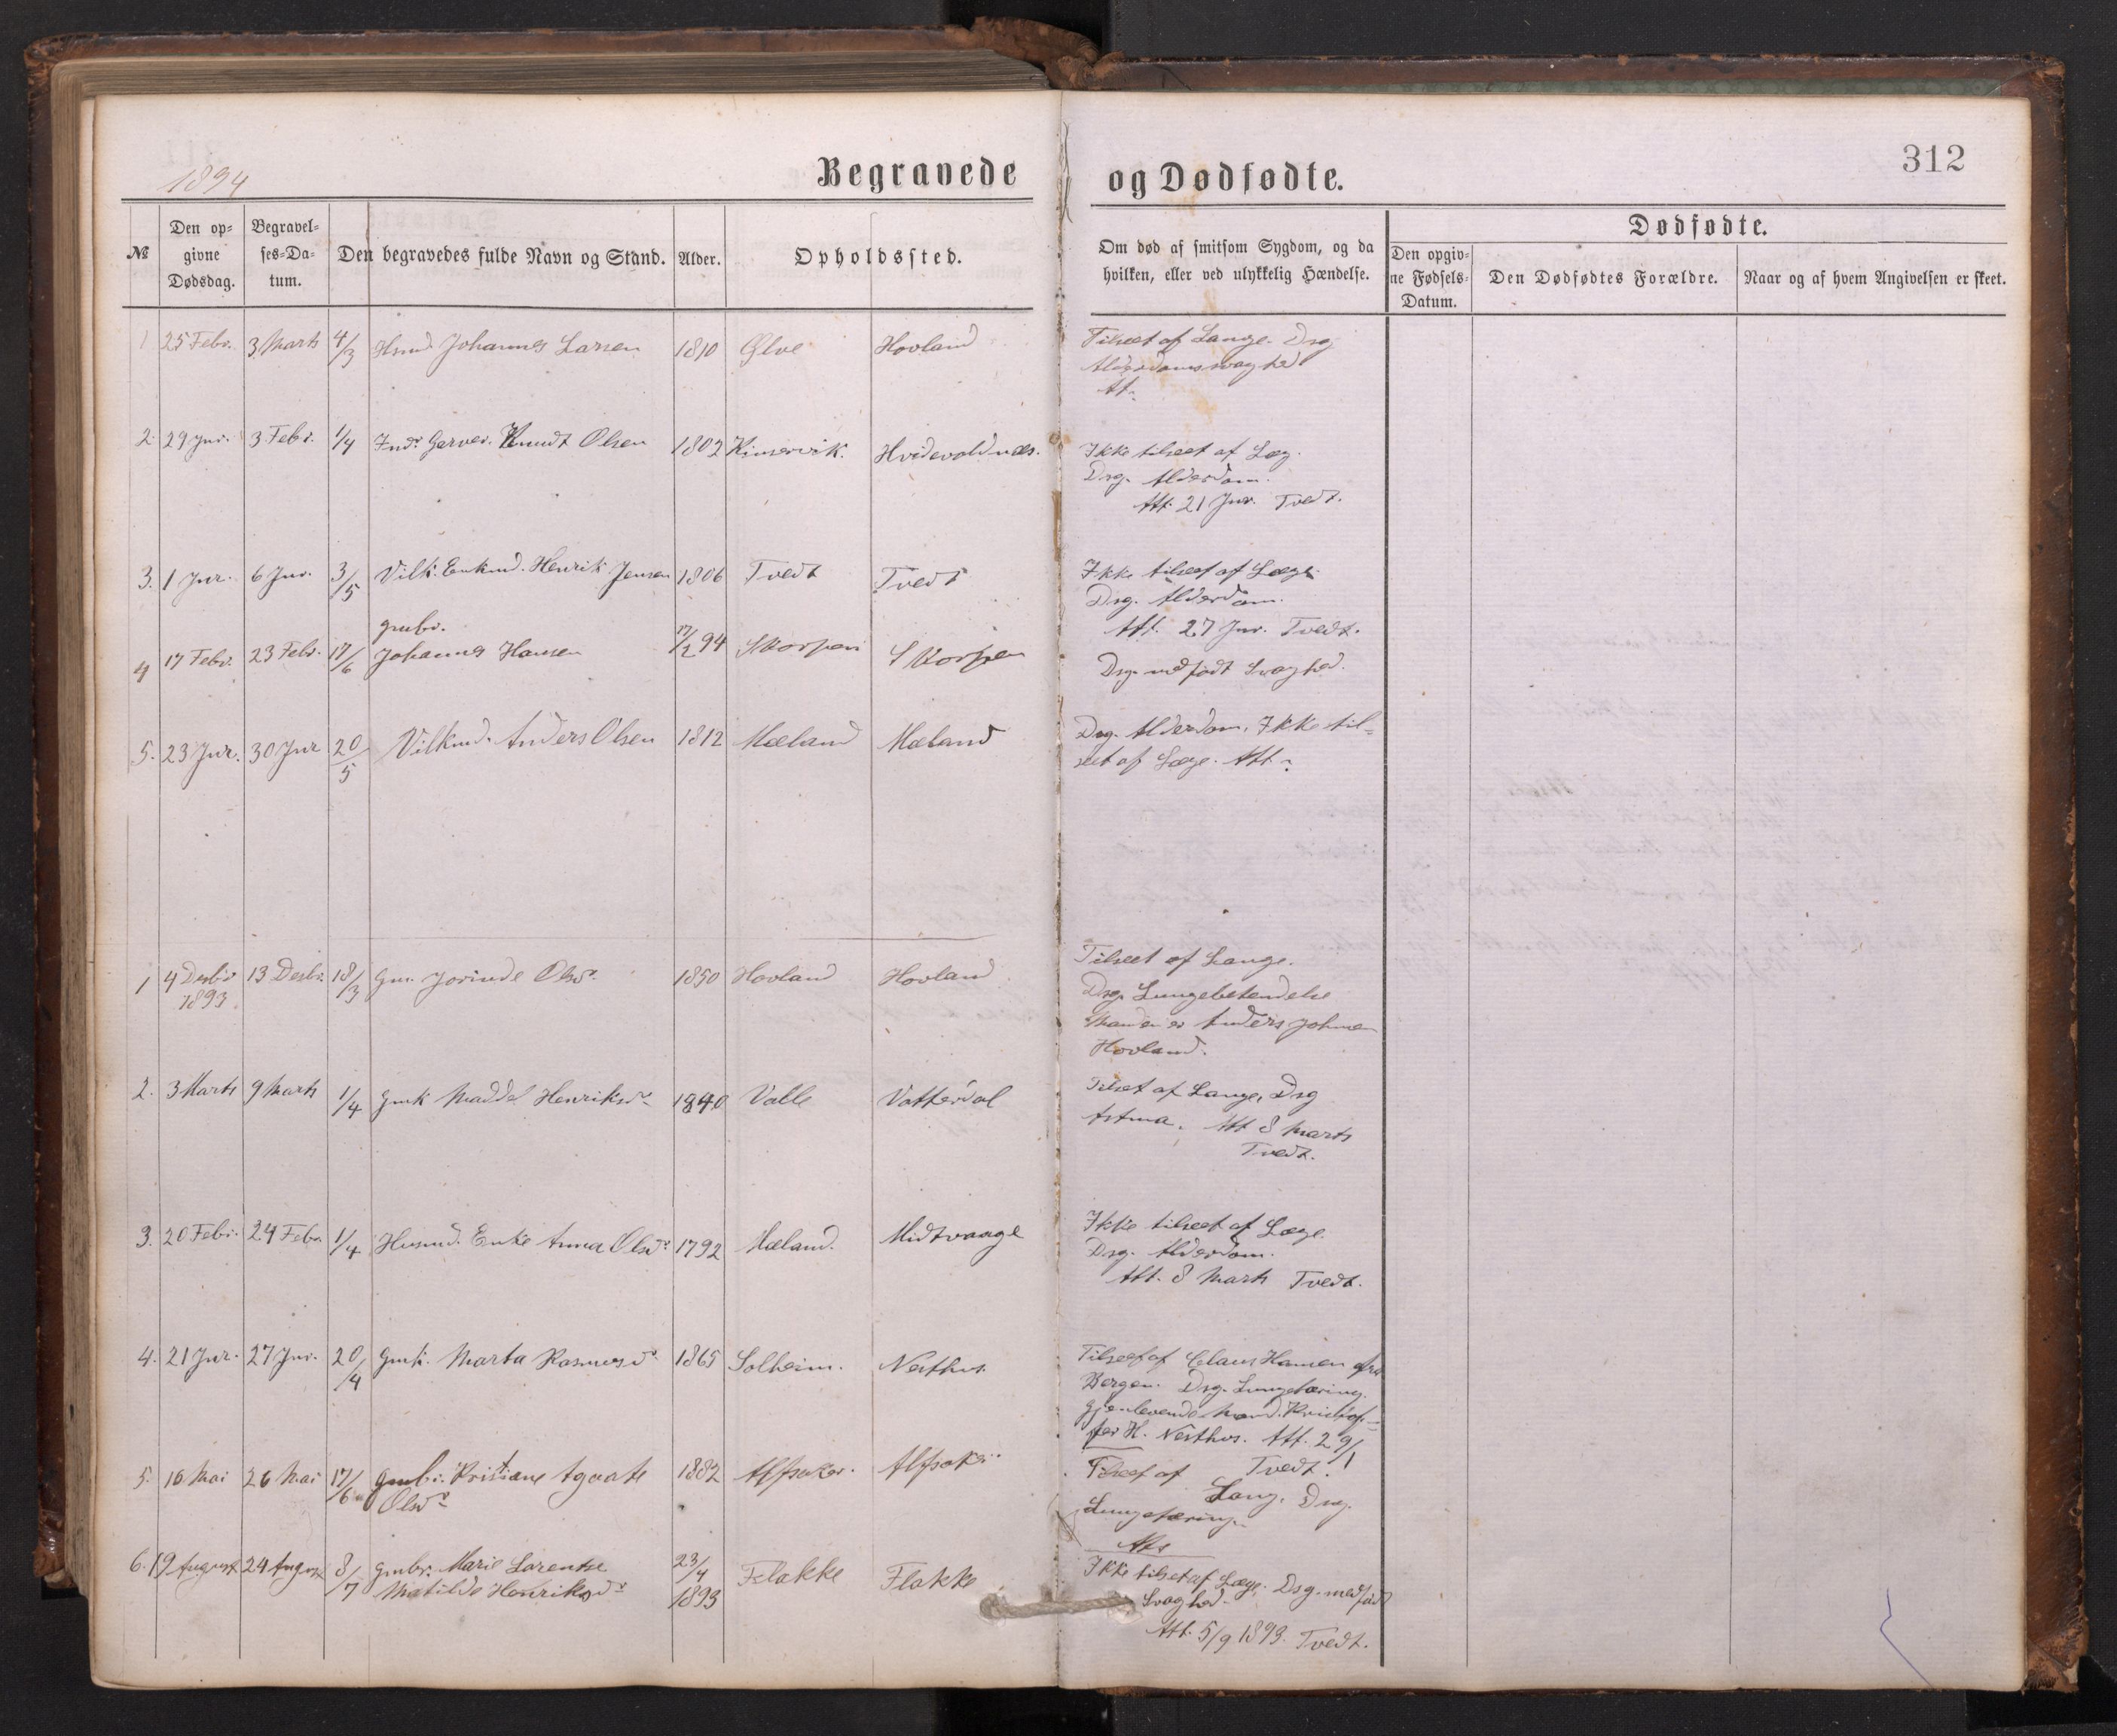 1894
Begravede
og Dødfødte.
312
№
Den op-
givne
Dødsdag.
Begravel-
ses-Da-
tum.
Den begravedes fulde Navn og Stand.
Alder.
Opholdssted.
Om død af smitsom Sygdom, og da
hvilken, eller ved ulykkelig Hændelse.
Dødfødte.
Den opgiv-
ne Fødsels-
Datum.
Den Dødfødtes Forældre.
Naar og af hvem Angivelsen er skeet.
1 25 Febr. 3 Marts 4/3 Husmd. Johannes Larsen 1810 Ølve Hovland
Tilseet af Lange. Dsg
Alderdomssvaghed
Att.
2. 29 Jnr. 3 Febr. 1/4 Inds. Garver. Knudt Olsen 1802 Kinservik. Hvidevoldnæs.
Ikke tilseet af Læg.
Dsg. Alderdom.
Att. 21 Jnr. Tvedt.
3. 1 Jnr. 6 Jnr. 3/5 Vilk. Enkmd. Henrik Jensen 1806 Tvedt Tvedt
Ikke tilseet af Læge.
Dsg. Alderdom.
Att. 27 Jnr. Tvedt.
gmbr.
4 17 Febr. 23 Febr. 17/6 Johannes Hansen 17/2 94 Skorpen Skorpen
Dsg. medfødt Svaghed.
5. 23 Jnr. 30 Jnr 20/5 Vilkmd. Anders Olsen 1812 Mæland Mæland
Dsg. Alderdom. Ikke til-
seet af Læge. Att.
1 4 Desbr 1893 13 Desbr. 18/3 Gm. Jorinde Olsdr. 1850 Hovland Hovland
Tilseet af Lange.
Dsg. Lungebetendelse
Manden er Anders Johnsen
Hovland.
2. 3 Marts 9 Marts 1/4 Gmk Maddel Henriksdr. 1840 Valle Vatterdal
Tilseet af Lange, Dsg
Astma. Att 8 Marts
Tvedt.
3. 20 Febr. 24 Febr. 1/4 Husmd. Enke Anna Olsdr. 1792 Mæland. Midtvaage
Ikke tilseet af Læge
Dsg. Alderdom.
Att. 8 Marts Tvedt.
4. 21 Jnr. 27 Jnr. 20/4 Gmk. Marta Rasmusdr. 1865 Solheim. Nesthus.
Tilseet af Claus Hansen fra
Bergen. Dsg. Lungetæring.
Gjenlevende Mand. Kristof-
fer H. Nesthus. Att. 29/1
Tvedt.
5. 16 Mai 26 Mai 17/6 Gmbr. Kristiane Agaate 1882 Alfsaker. Alfsaker
Olsdr.
Tilseet af
Lang. Dsg.
Lungetæring.
Att
6. 19 August 24 August 8/7 Gmbr. Marie Larentse 23/4 1893 Flakke Flakke
Matilde Henriksdr.
Ikke tilseet af Læge. Dsg. medfødt
Svaghed.
Att. 5/9 1893. Tvedt.